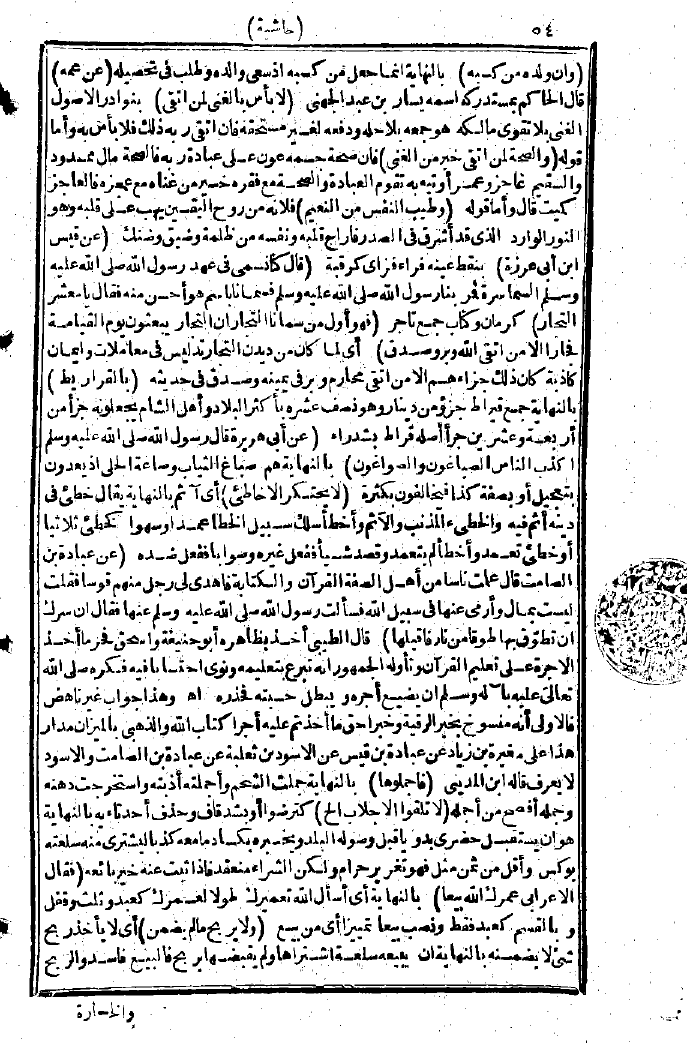 ٥٤ (حاشية)
(وان ولده من كسبه) بالنهاية انما جعل من كسبه اذ سعى والده وطلب فى تحصيله (عن عمه)
قال الحاكم بمستدركه اسمه يسار بن عبد الجهنى (لا بأس بالغنى لمن اتقى) بنوادر الاصول
الغنى بلا تقوى مالكه هو جمعه بلا حله ودفعه لغير مستحقه فان اتقى ربه ذلك فلا بأس به وأما
قوله (والصحة لمن اتقى خير من الغنى) فان صحة جسمه عون على عبادة ربه فالصحة مال ممدود
والسقيم عاجز وعمر أوتيه به تقوم العبادة والصحة مع فقره خير من غناه مع عجزه فالعاجز
كميت قال وأما قوله (وطيب النفس من النعيم) فلانه من روح اليقين يهب على قلبه وهو
النور الوارد الذى قد أشرق فى الصدر فاراح قلبه ونفسه من ظلمة وضيق وضنك (عن قيس
ابن أبى غرزة) بنقط عينه فراء فزاى كرقبة (قال كنا نسمى فى عهد رسول الله صلى الله عليه
وسلم السماسرة فمر بنا رسول الله صلى الله عليه وسلم فسمانا باسم هو أحسن منه فقال يا معشر
التجار) كرمان وكتاب جمع تاجر (فهو أول من سمانا التجار ان التجار يبعثون يوم القيامة
فجارا الا من اتقى الله وبر وصدق) أى لما كان من ديدن التجار تدليس فى معاملات وايمان
كاذبة كان ذلك جزاءهم الا من اتقى محارم وبر فى يمينه وصدق فى حديثه (بالقراريط)
بالنهاية جمع قيراط جزؤ من دينار وهو نصف عشره بأكثر البلاد وأهل الشام يجعلونه جزأ من
أربعة وعشرين جزأ أصله قراط بشد راء (عن أبى هريرة قال رسول الله صلى الله عليه وسلم
اكذب الناس الصباغون والصواغون) بالنهاية هم صباغ الثياب وصاغة الحلى اذ يعدون
بتعجيل أو بصفة كذا فيخالفون بكثرة (لا يحتكر الا خاطئ) أى آثم بالنهاية يقال خطئ فى
دينه أثم فيه والخطىء المذنب والآثم وأخطأ سلك سبيل الخطا عمدا وسهوا كخطئ ثلاثيا
أو خطئ تعمد وأخطأ لم يتعمد وقصد شيأ ففعل غيره وصوابا ففعل ضده (عن عبادة بن
الصامت قال علمت ناسا من أهل الصفة القرآن والكتابة فاهدى لى رجل منهم قوسا فقلت
ليست بمال وأرمى عنها فى سبيل الله فسألت رسول الله صلى الله عليه وسلم عنها فقال ان سرك
ان تطوق بها طوقا من نار فاقبلها) قال الطيبى أخذ بظاهره أبو حنيفة واسحق فحرما أخذ
الاجرة على تعليم القرآن وتأوله الجمهور انه تبرع بتعليمه ونوى احتسابا فيه فكره صلى الله
تعالى عليه بآله وسلم ان يضيع أجره ويبطل حسبته فحذره اه وهذا جواب غير ناهض
فالاولى أنه منسوخ بخبر الرقية وخبر احق ما أخذتم عليه أجرا كتاب الله والذهبى بالميزان مدار
هذا على مغيرة بن زياد عن عبادة بن قيس عن الاسود بن ثعلبة عن عبادة بن الصامت والاسود
لا يعرف قاله ابن المدينى (فاجملوها) بالنهاية جملت الشحم وأجملته أذبته واستخرجت دهنه
وجمله أفصح من أجمله (لا تلقوا الاجلاب الخ) كترضوا أو بشد قاف وحذف أحد تاءيه بالنهاية
هو ان يستقبل حضرى بدويا قبل وصوله البلد ويخبره بكساد ما معه كذبا ليشترى منه سلعته
بوكس وأقل من ثمن مثل فهو تغرير حرام ولكن الشراء منعقد فاذا ثبت عنه خير بائعه (فقال
الاعرابى عمرك الله بيعا) بالنهاية أى أسأل الله تعميرك طولا لعمرك كعبد وثلث وقفل
وبالقسم كعبد فقط ونصب بيعا تمييزا أى من بيع (ولا ربح مالم يضمن) أى لا يأخذ ربح
شئ لا يضمنه بالنهاية ان يبيعه سلعة اشتراها ولم يقبضها بربح فالبيع فاسد والربح
والخسارة